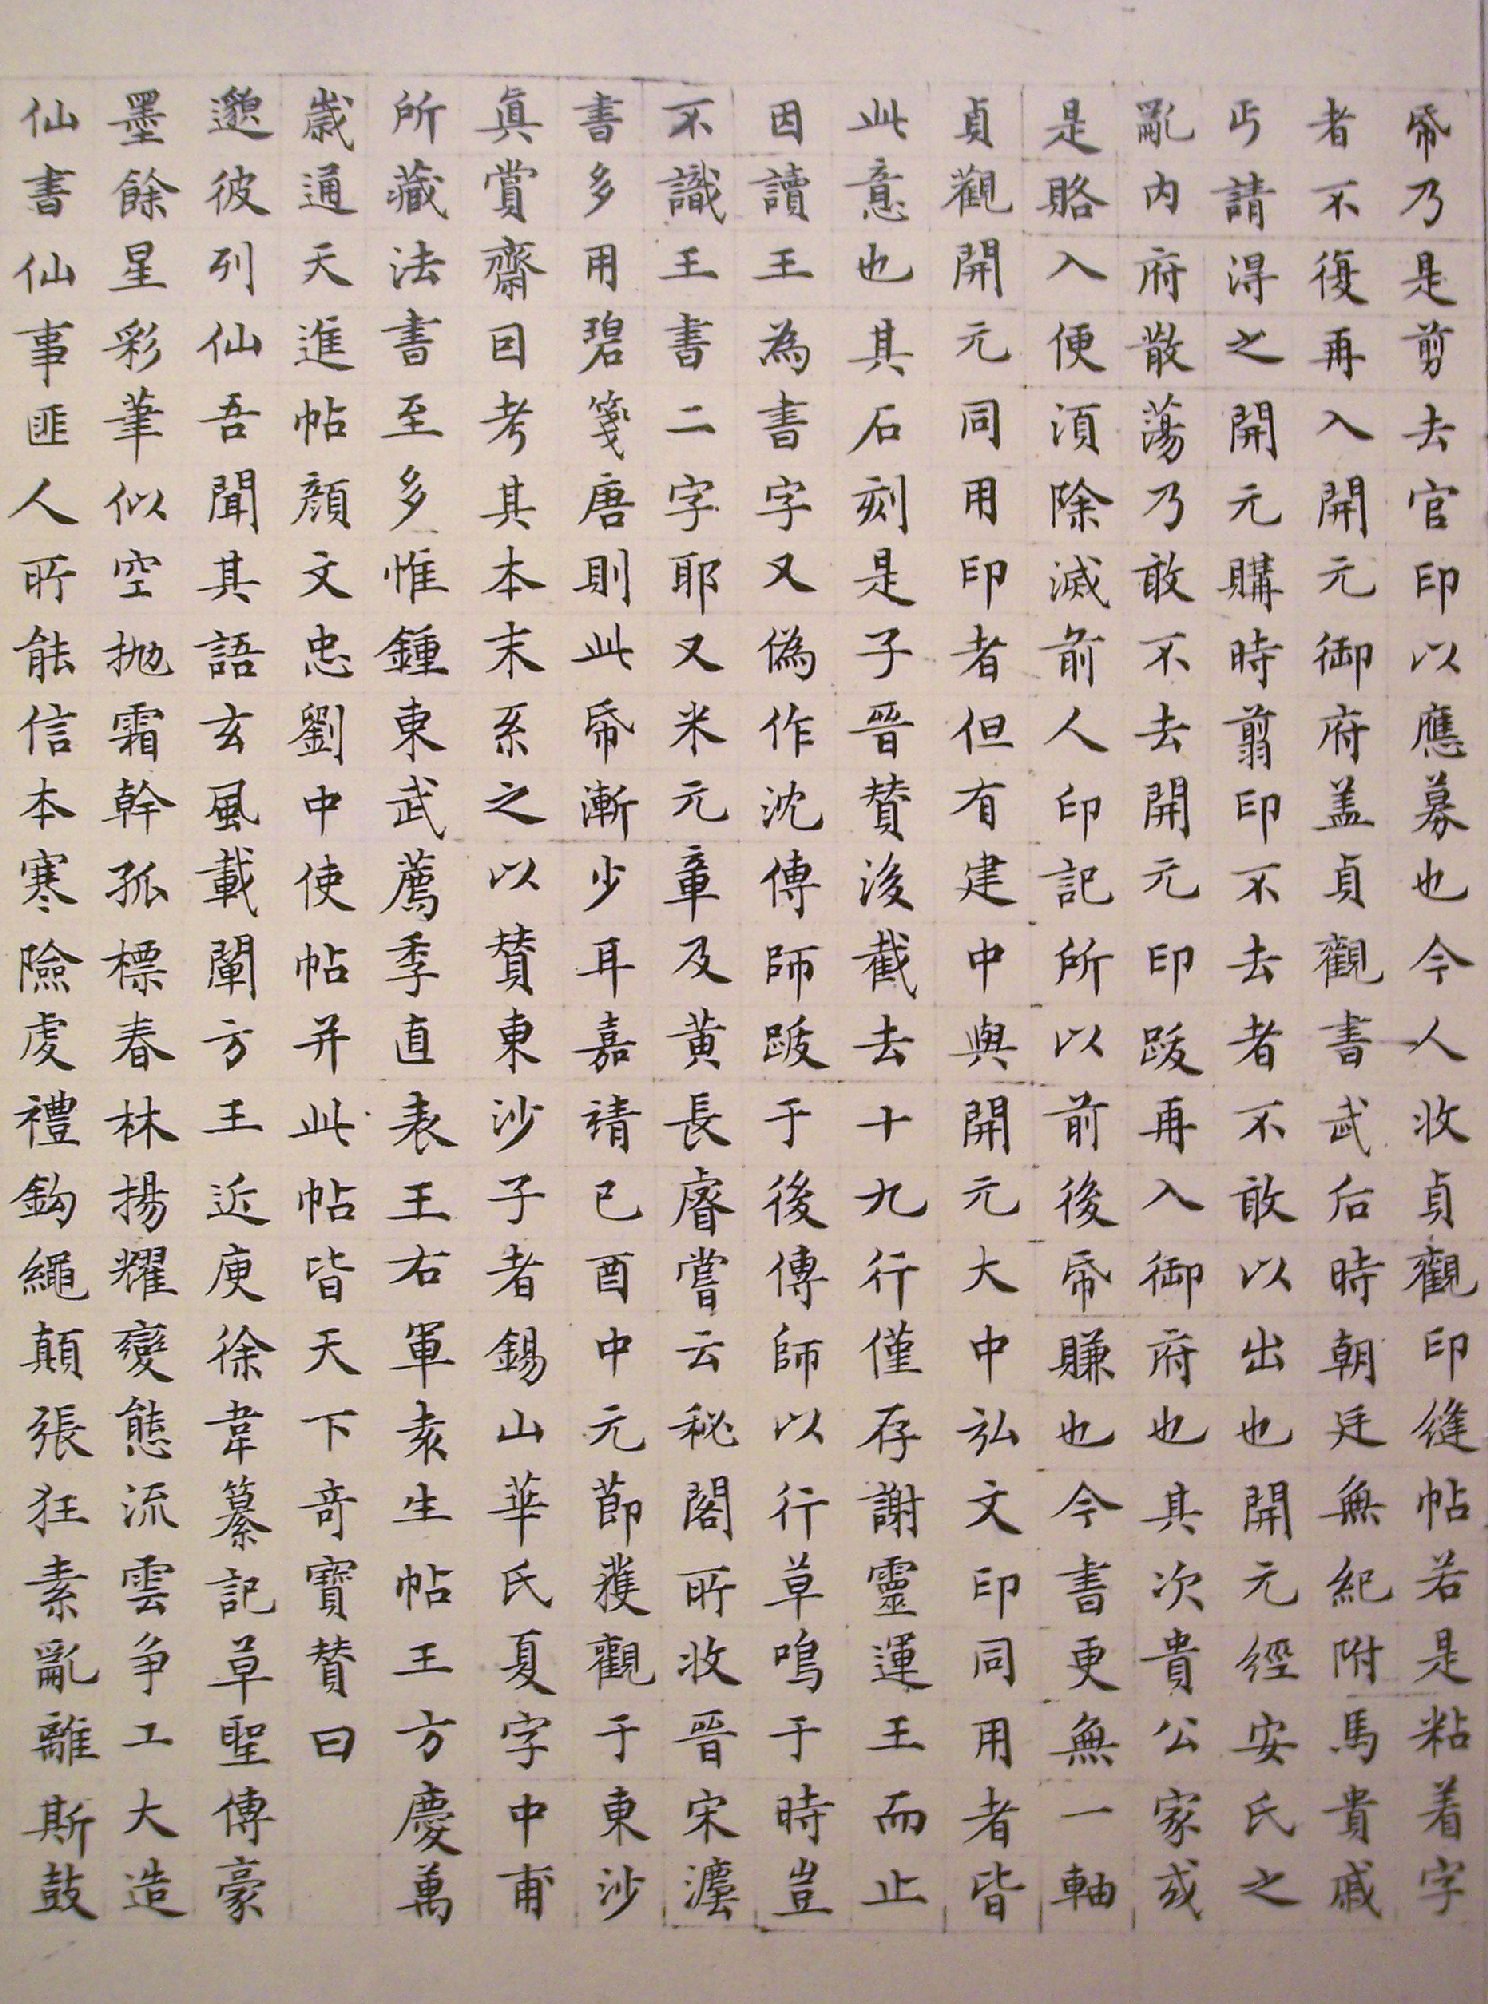 帋乃是剪去官印以應募也今人收貞觀印縫帖若是粘着字
者不復再入開元御府盖貞觀書武后時朝廷無紀附馬貴戚
丐請得之開元購時翦印不去者不敢以出也開元經安氏之
亂内府散蕩乃敢不去開元印跋再入御府也其次貴公家或
是賂入便須除滅前人印記所以前後帋賺也今書更無一軸
貞觀開元同用印者但有建中與開元大中弘文印同用者皆
此意也其石刻是子晉贊後截去十九行僅存謝靈運王而止
因讀王為書字又偽作沈傳師跋于後傳師以行草鳴于時豈
不識王書二字耶又米元章及黄長睿嘗云秘閣所收晉宋灋
書多用碧箋唐則此帋漸少耳嘉靖己酉中元節獲觀于東沙
真賞齋因考其本末系之以贊東沙子者錫山華氏夏字中甫
所藏法書至多惟鍾東武薦季直表王右軍袁生帖王方慶萬
歲通天進帖顔文忠劉中使帖并此帖皆天下奇寶贊曰
邈彼列仙吾聞其語玄風載闡方王近庾徐韋纂記草聖傳豪
墨餘星彩筆似空拋霜幹孤標春林揚耀變態流雲争工大造
仙書仙事匪人所能信本寒險虔禮鈎繩顛張狂素亂離斯鼓